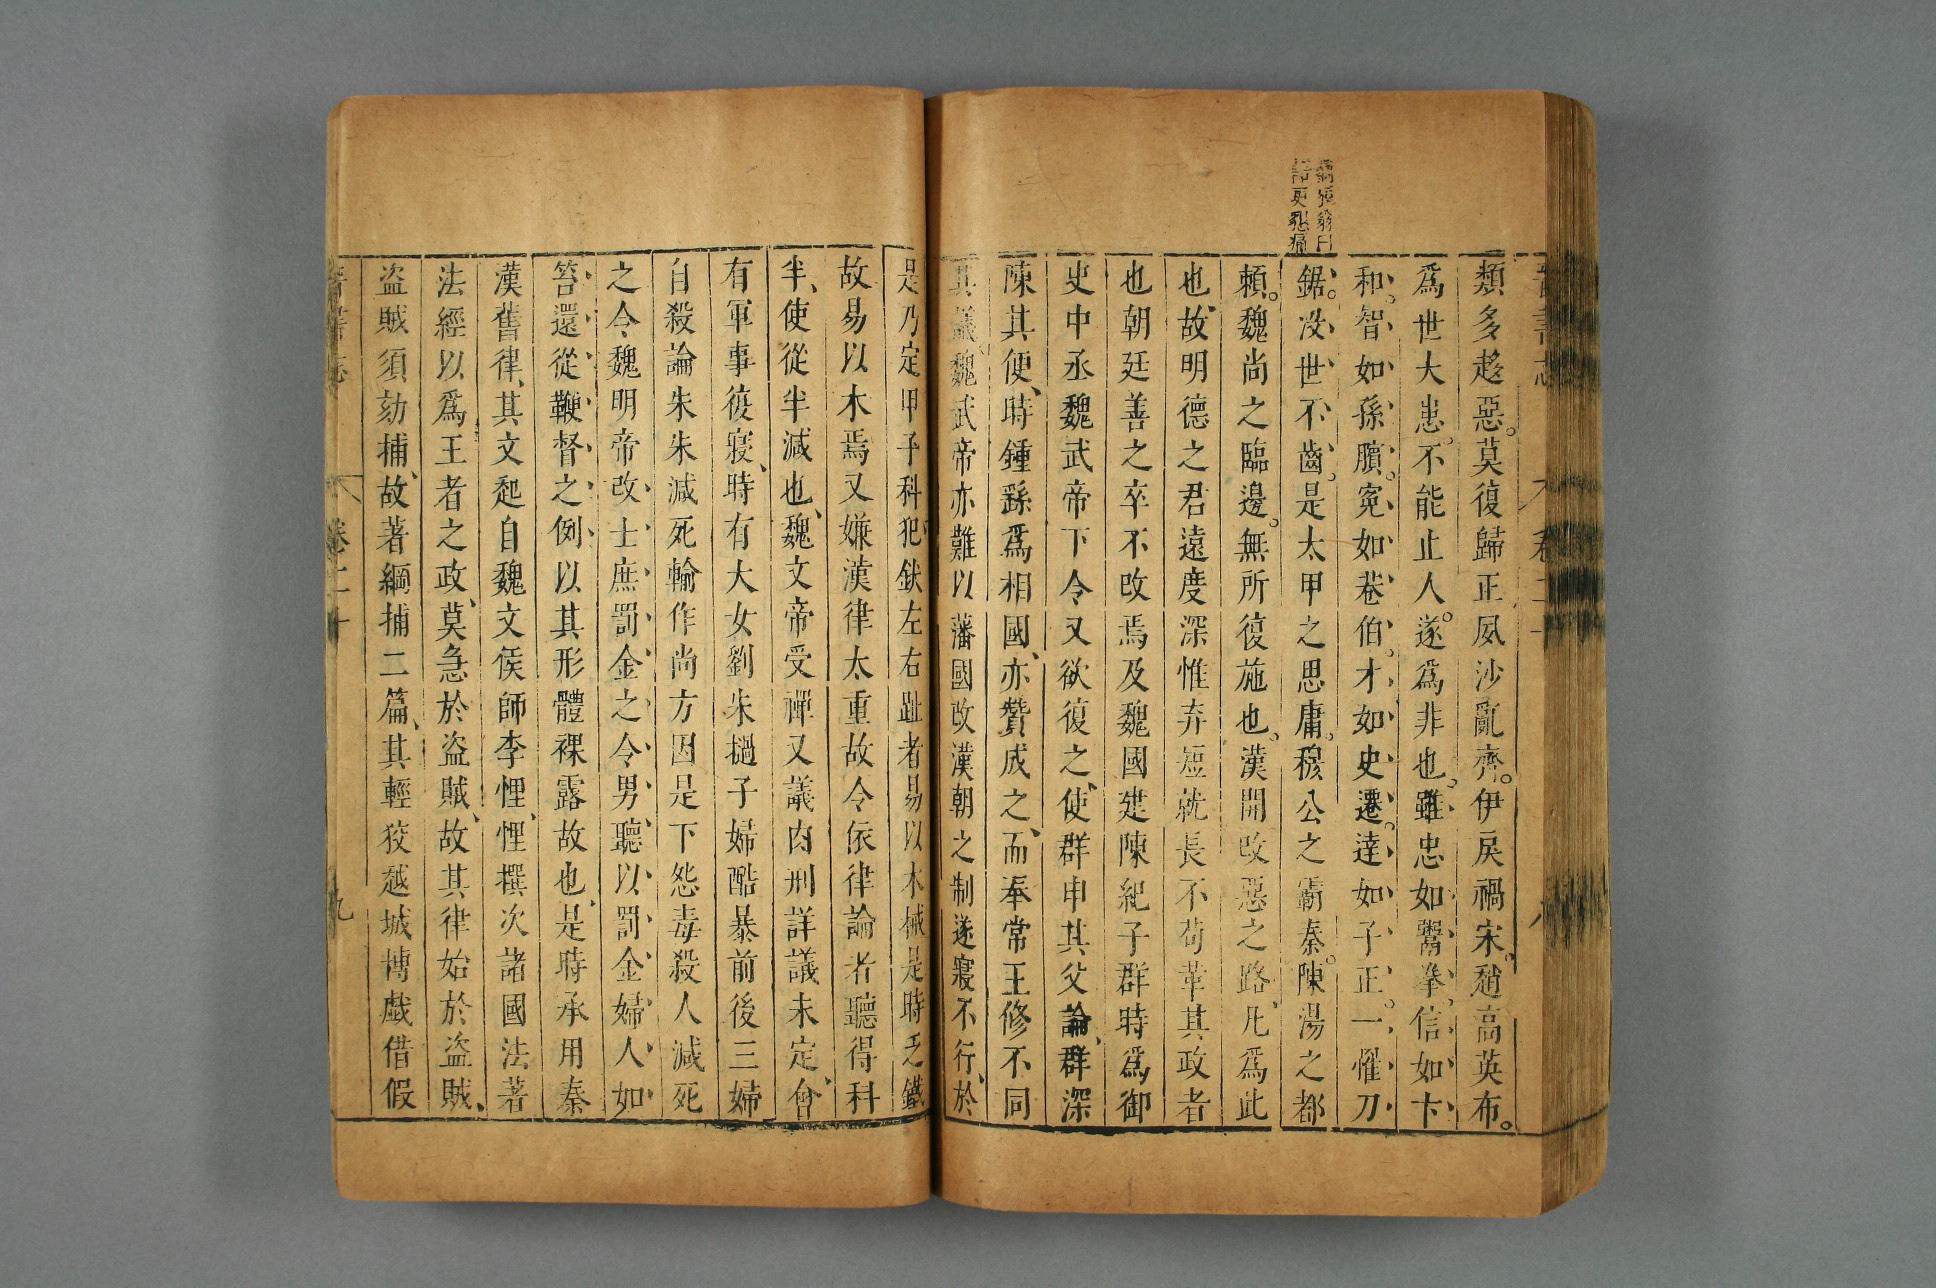 晉書志
卷二十
八
類多趍惡。莫復歸正夙沙亂齊。伊戾禍宋。趙高英布。
爲世大患。不能止人。遂爲非也。雖忠如鬻拳。信如卞
和。智如孫臏。寃如巷伯。才如史遷。達如子正。一懼刀
鋸。没世不齒。是太甲之思庸。穆公之霸秦。陳湯之都
頼。魏尚之臨邊。無所復施也。漢開改惡之路、凡爲此
也、故明德之君遠度深惟弃短就長不苟革其政者
也朝廷善之卒不改焉及魏國建陳紀子群時爲御
史中丞魏武帝下令又欲復之、使群申其父論、群深
陳其便、時鍾繇爲相國、亦贊成之、而奉常王修不同
其議、魏武帝亦難以藩國改漢朝之制遂寢不行、於
是乃定甲子科犯釱左右趾者易以木械是時乏鐵
故易以木焉又嫌漢律太重故令依律論者聽得科
半、使從半減也、魏文帝受禪又議肉刑詳議未定、會
有軍事復寢、時有大女劉朱撾子婦酷暴前後三婦
自殺論朱朱減死輸作尚方因是下怨毒殺人減死
之令魏明帝改士庶罰金之令男聽以罰金婦人如
笞還從鞭督之例以其形體裸露故也、是時承用秦
漢舊律、其文起自魏文侯師李悝、悝撰次諸國法著
法經以爲王者之政、莫急於盜賊、故其律始於盜賊、
盜賊須劾捕、故著網捕二篇、其輕狡越城博戲借假
晉書志
卷二十
九